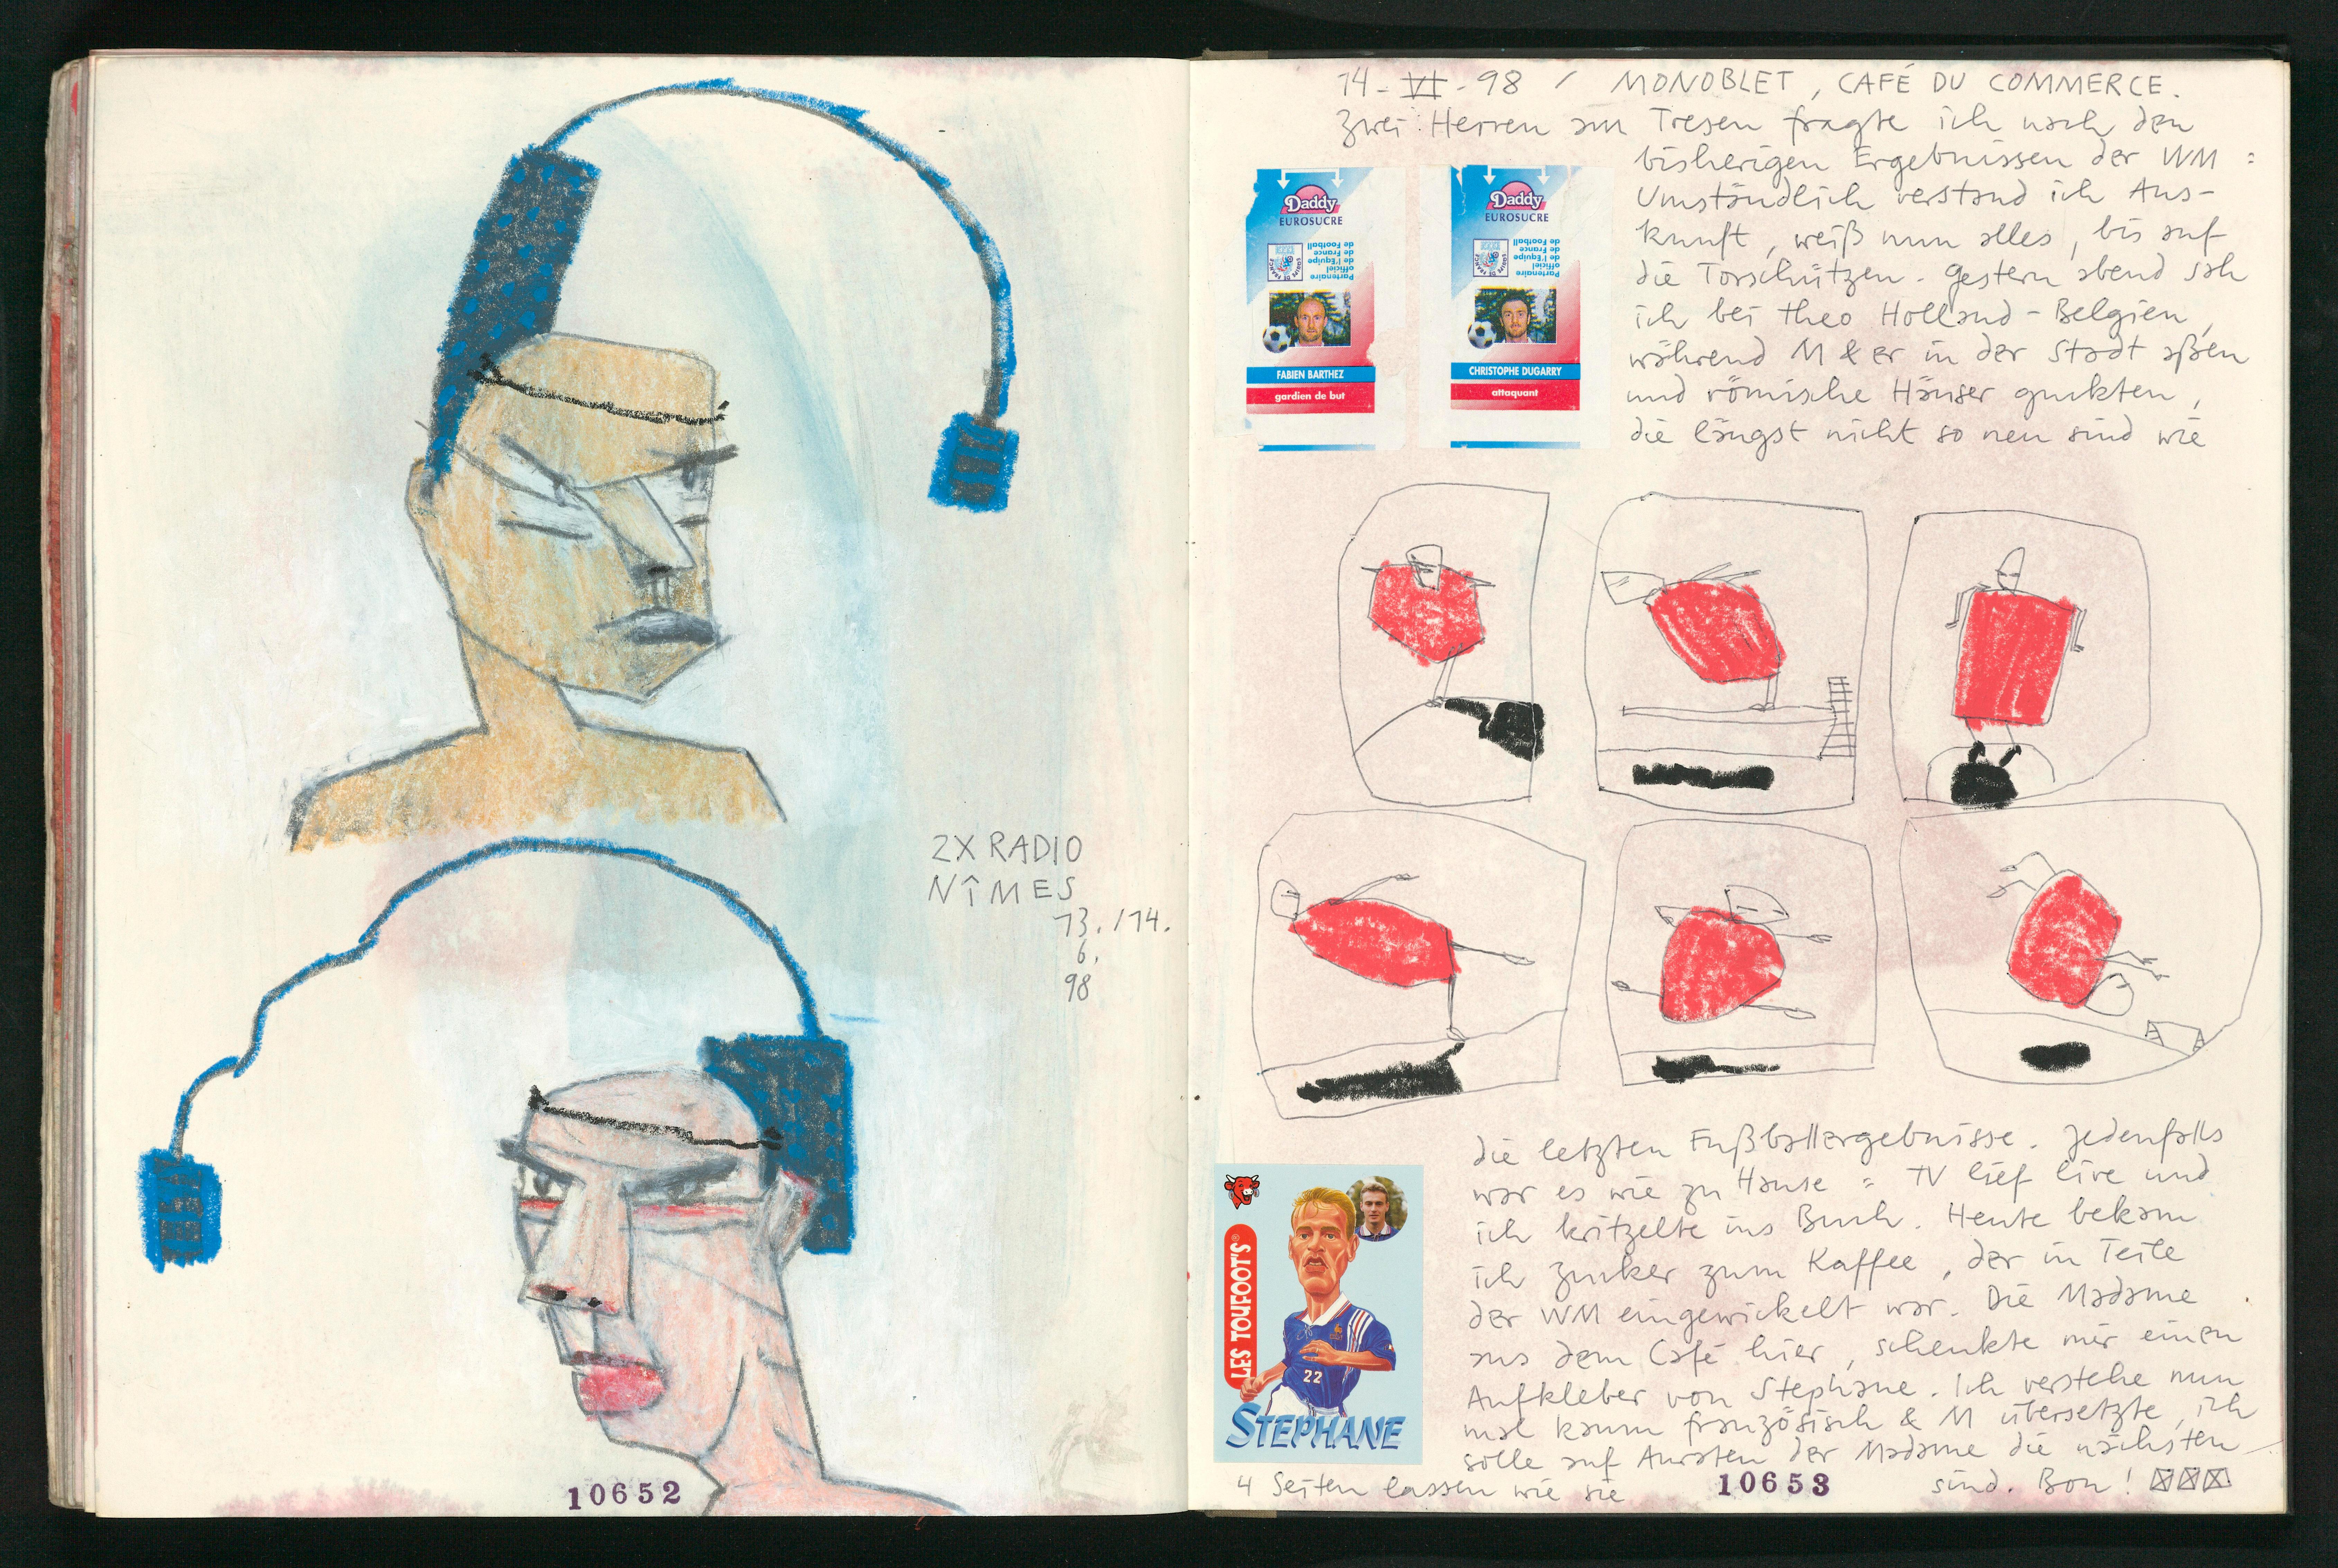 2X RADIO
NÎMES
13./14.
6.
98
10652
14-VI-98 / MONOBLET, CAFÉ DU COMMERCE.
Zwei Herren am Tresen fragte ich nach den
bisherigen Ergebnissen der WM:
Umständlich verstand ich Aus-
kunft, weiß nun alles, bis auf
die Torschützen. Gestern abend sah
ich bei Theo Holland-Belgien,
während M & er in der Stadt aßen
und römische Häuser guckten,
die längst nicht so neu sind wie
Daddy
EUROSUCRE
Partenaire
officiel
de l'Equipe
de France
de Football
FABIEN BARTHEZ
gardien de but
Daddy
EUROSUCRE
Partenaire
officiel
de l'Equipe
de France
de Football
CHRISTOPHE DUGARRY
attaquant
die letzten Fußballergebnisse. Jedenfalls
war es wie zu Hause: TV lief live und
ich kritzelte ins Buch. Heute bekam
ich Zucker zum Kaffee, der in Teile
der WM eingewickelt war. Die Madame
aus dem Café hier, schenkte mir einen
Aufkleber von Stephane. Ich verstehe nun
mal kaum französisch & M übersetzte, ich
solle auf Anraten der Madame die nächsten
4 Seiten lassen wie sie sind. Bon!
LES TOUFOOT'S®
22
STEPHANE
10653